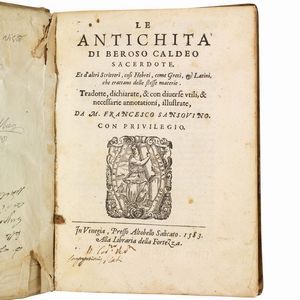 LE
ANTICHITA
DI BEROSO CALDEO
SACERDOTE.
Et d'altri Scrittori, così Hebrei, come Greci, & Latini,
che trattano delle stesse materie.
Tradotte, dichiarate, & con diuerse vtili, &
necessarie annotationi, illustrate,
DA M. FRANCESCO SANSOVINO.
CON PRIVILEGIO.
In Vinegia, Presso Altobello Salicato. 1583.
Alla Libraria della Fortezza.